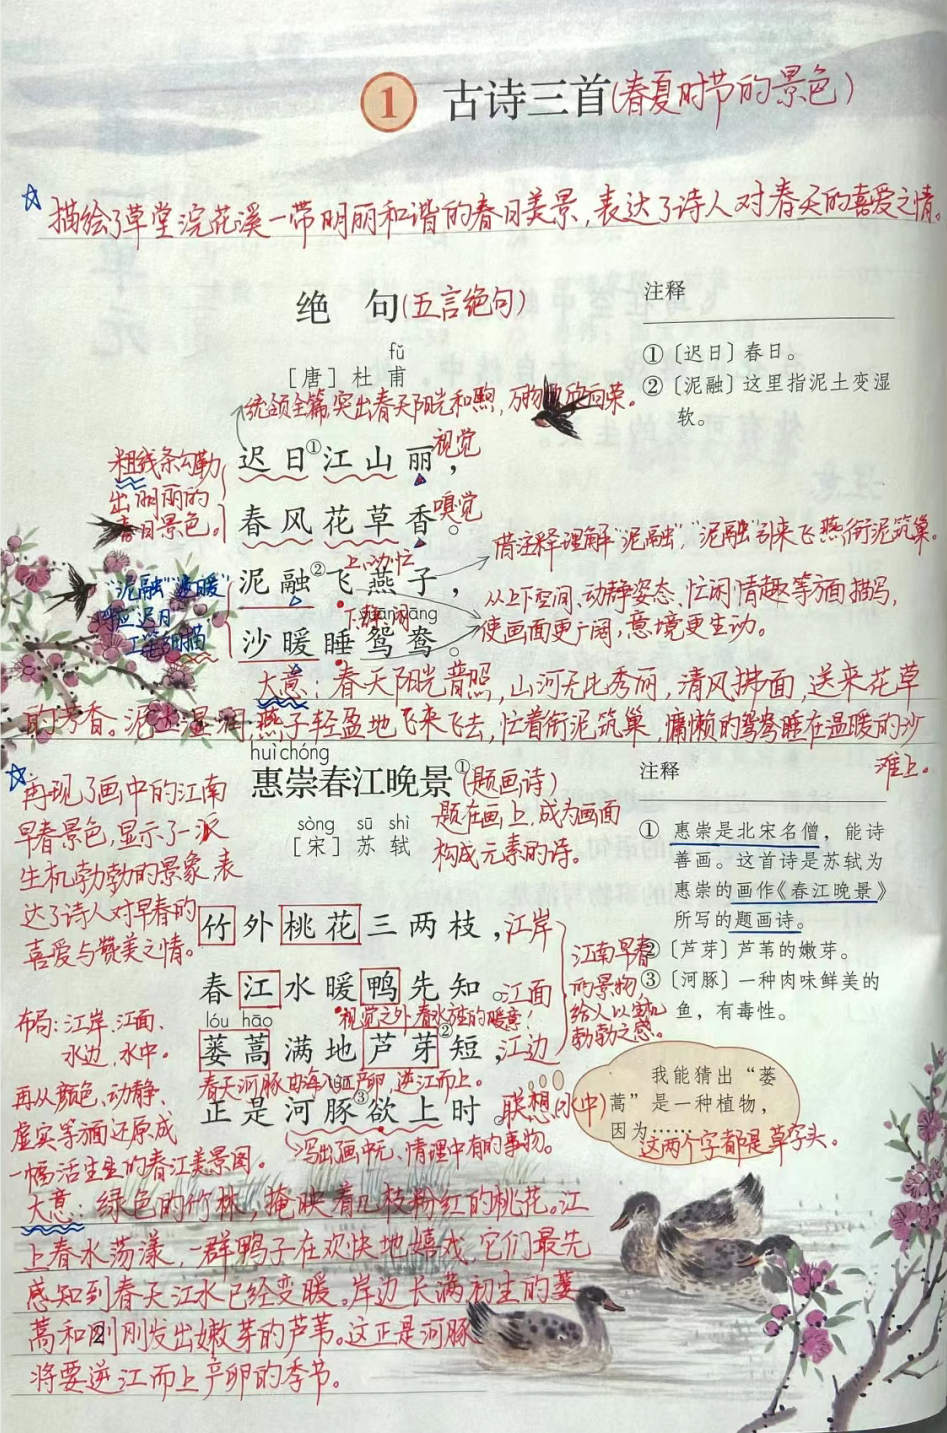 1 古诗三首(春夏时节的景色)
描绘了草堂浣花溪一带明丽和谐的春日美景,表达了诗人对春天的喜爱之情。
绝 句(五言绝句)
fǔ
[唐] 杜 甫
统领全篇,突出春天阳光和煦,万物欣欣向荣。
迟日①江山丽,视觉
春风花草香。嗅觉
泥融②飞燕子,
上、动、忙
下、静、闲
yuān yāng
沙暖睡鸳鸯。
粗线条勾勒
出明丽的
春日景色。
"泥融""沙暖"
呼应迟日
工笔细描
借注释理解"泥融","泥融"引来飞燕衔泥筑巢。
从上下空间、动静姿态、忙闲情趣等方面描写,
使画面更广阔,意境更生动。
注释
①〔迟日〕春日。
②〔泥融〕这里指泥土变湿
软。
大意:春天阳光普照,山河无比秀丽,清风拂面,送来花草
的芳香。泥土湿润,燕子轻盈地飞来飞去,忙着衔泥筑巢,慵懒的鸳鸯睡在温暖的沙
滩上。
huì chóng
惠崇春江晚景①(题画诗)
sòng sū shì
[宋] 苏 轼
题在画上,成为画面
构成元素的诗。
再现了画中的江南
早春景色,显示了一派
生机勃勃的景象,表
达了诗人对早春的
喜爱与赞美之情。
竹外桃花三两枝,江岸
春江水暖鸭先知。江面
视觉之外,春水
lóu hāo
蒌蒿满地芦芽②短,江边
春天河豚由海入江产卵,逆江而上。
tún
正是河豚③欲上时。联想(水中)
写出画中无、情理中有的事物。
江南早春
的景物,
给人以生机
勃勃之感。
布局:江岸、江面、
水边、水中。
再从颜色、动静、
虚实等方面还原成
一幅活生生的春江美景图。
注释
① 惠崇是北宋名僧,能诗
善画。这首诗是苏轼为
惠崇的画作《春江晚景》
所写的题画诗。
②〔芦芽〕芦苇的嫩芽。
③〔河豚〕一种肉味鲜美的
鱼,有毒性。
我能猜出“蒌
蒿”是一种植物,
因为……
这两个字都是草字头。
大意:绿色的竹林,掩映着几枝粉红的桃花。江
上春水荡漾,一群鸭子在欢快地嬉戏,它们最先
感知到春天江水已经变暖。岸边长满初生的蒌
蒿和刚刚发出嫩芽的芦苇。这正是河豚
将要逆江而上产卵的季节。
2